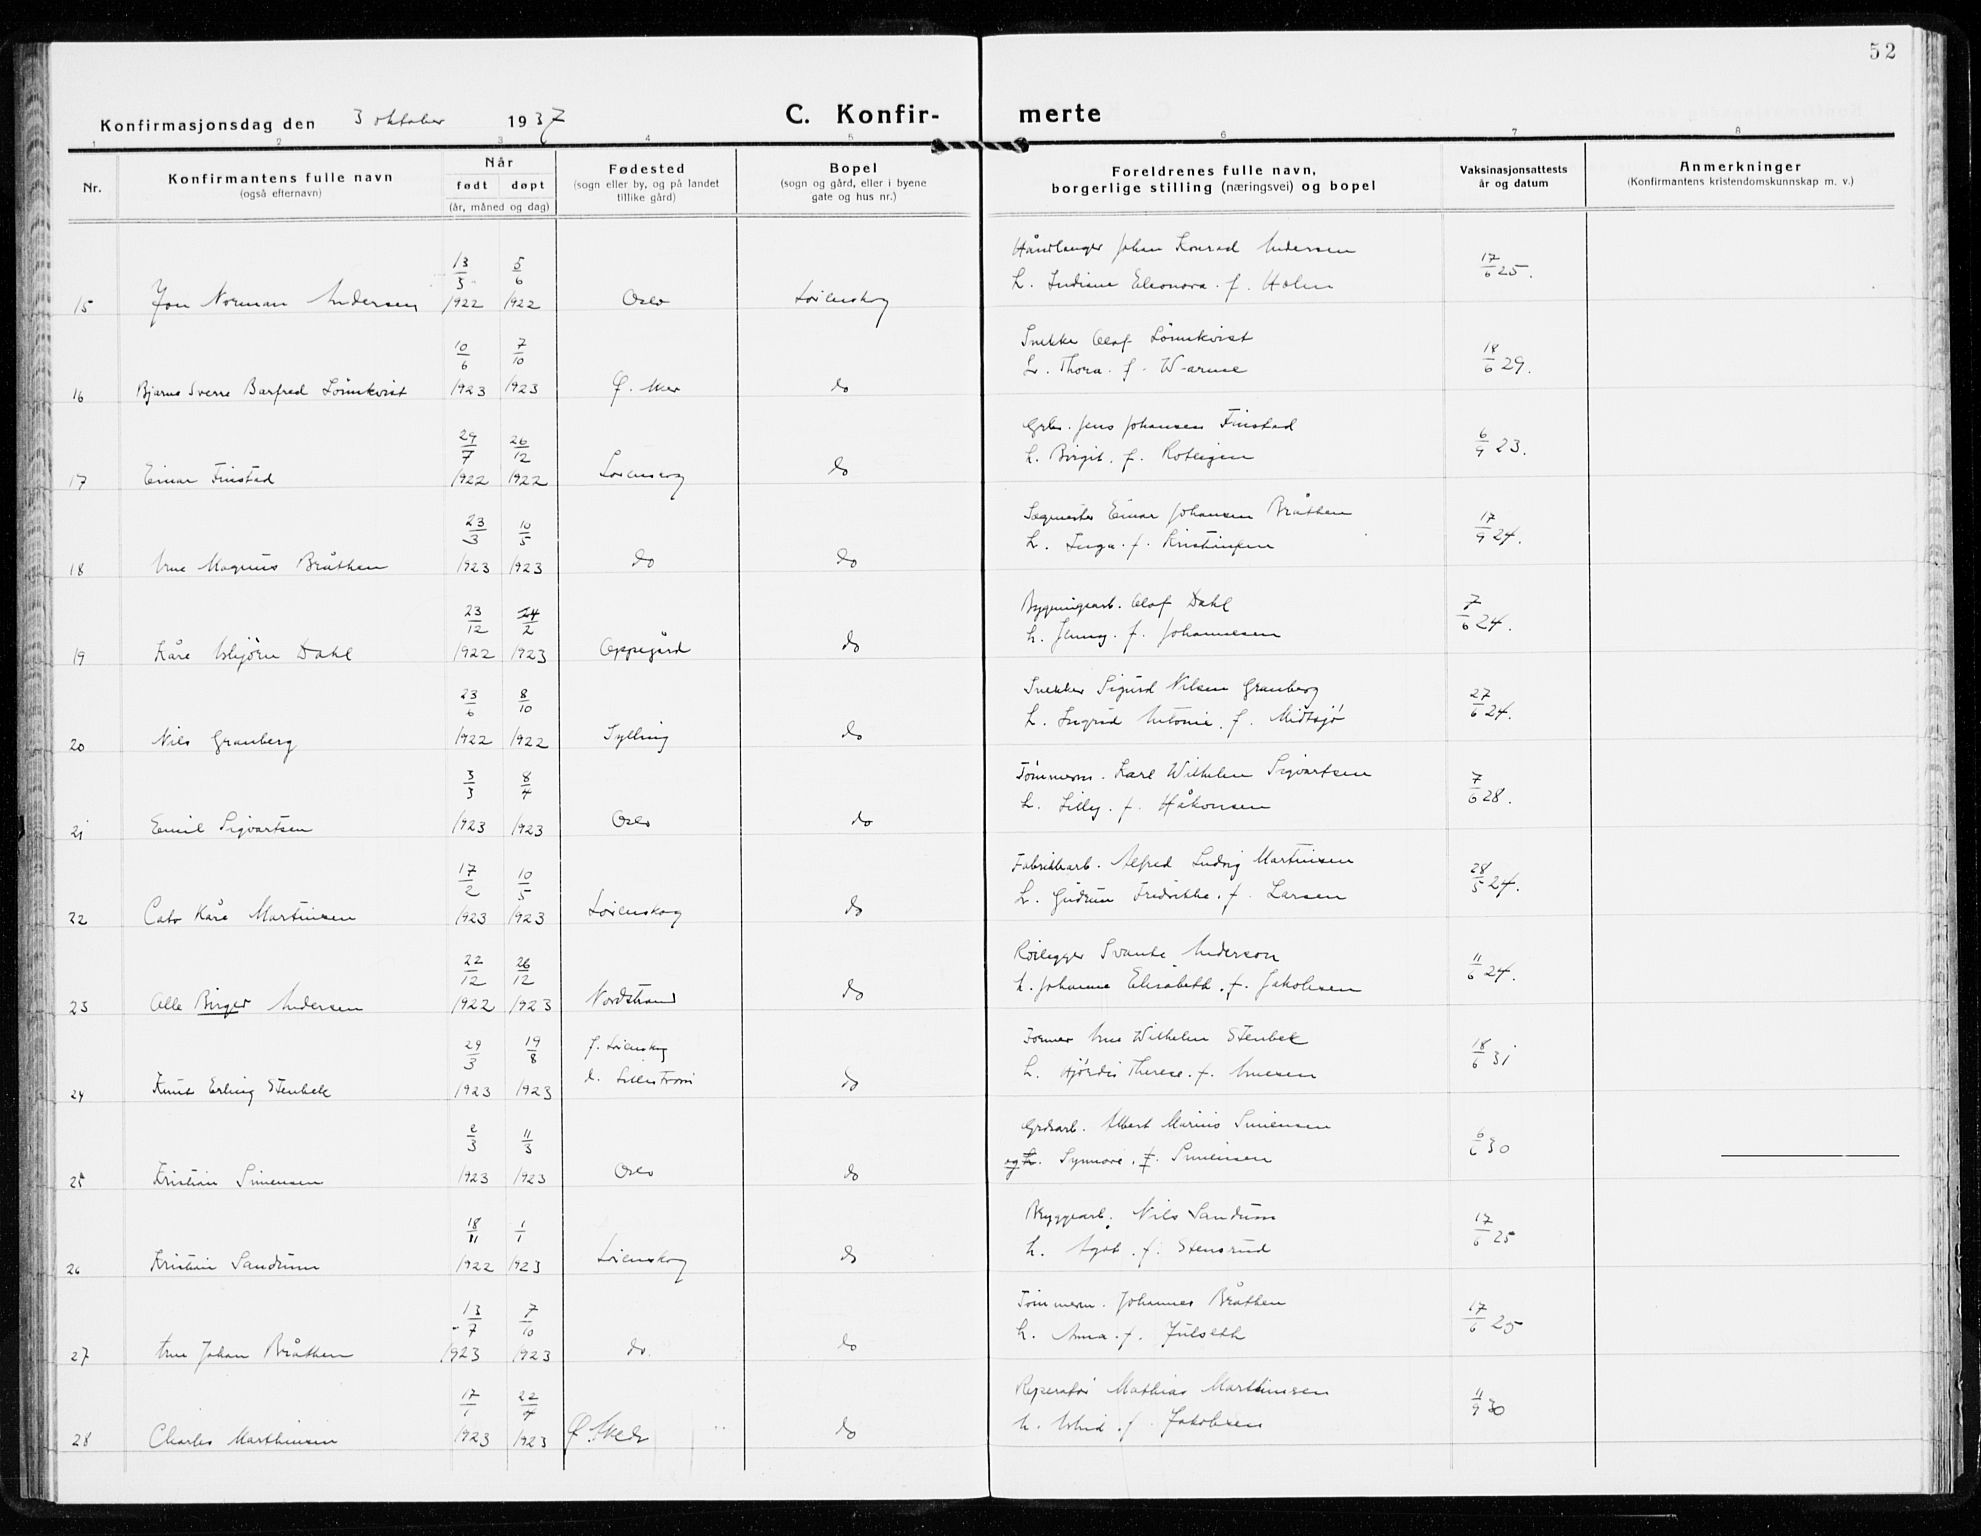 52
Konfirmasjonsdag den 3 oktober 1937
C. Konfir- merte
1 2 3 4 5 6 7 8
Nr.
Konfirmantens fulle navn
(også efternavn)
Når
født døpt
(år, måned og dag)
Fødested
(sogn eller by, og på landet
tillike gård)
Bopel
(sogn og gård, eller i byene
gate og hus nr.)
Foreldrenes fulle navn,
borgerlige stilling (næringsvei) og bopel
Vaksinasjonsattests
år og datum
Anmerkninger
(Konfirmantens kristendomskunnskap m. v.)
13/3 5/6 Håndlanger Johan Konrad Andersen 17/6 25.
15 Jon Norman Andersen 1922 1922 Oslo Lørenskog h. Indiane Eleonora f. Holm
10/6 7/10 Snekker Olof Lönnkvist 18/6 29.
16 Bjarne Sverre Barfred Lönnkvist 1923 1923 Ø. Aker do h. Thora f. Warme
29/7 26/12 Grbr. Jens Johansen Finstad 6/9 23.
17 Einar Finstad 1922 1922 Lørenskog do h. Birgit f. Roteigen
23/3 10/5 Sagmester Einar Johansen Bråthen 17/9 24.
18 Arne Magnus Bråthen 1923 1923 do do h. Inga f. Kristiansen
23/12 24/2 Bygningsarb. Olof Dahl 7/6 24.
19 Kåre Asbjörn Dahl 1922 1923 Oppegård do h. Jenny f. Johannesen
23/6 8/10 Snekker Sigurd Nilsen Granberg 27/6 24.
20 Nils Granberg 1922 1922 Sylling do h. Ingrid Antonie f. Midtsjö
3/3 8/4 Tömmerm. Karl Wilhelm Sigvartsen 7/6 28.
21 Emil Sigvartsen 1923 1923 Oslo do h. Lilly f. Håkonsen
17/2 10/5 Fabrikkarb. Alfred Ludvig Martinsen 28/5 24.
22 Cato Kåre Martinsen 1923 1923 Lørenskog do h. Gudrun Fredrikke f. Larsen
22/12 26/12 Rørlegger Svante Anderson 11/6 24.
23 Olle Birger Andersen 1922 1923 Nordstrand do h. Johanne Elisabeth f. Jakobsen
29/3 19/8 f. Lørenskog Former Arne Wilhelm Stenbek 18/6 31
24 Knut Erling Stenbek 1923 1923 d. Lillestrøm do h. Hjördis Therese f. Arnesen
2/3 11/3 Grdsarb. Albert Marius Simensen 6/6 30
25 Kristian Simensen 1923 1923 Oslo do og h. Synnöve f. Simensen
18/11 1/1 Bryggearb. Nils Sandum 17/6 25
26 Kristian Sandum 1922 1923 Lørenskog do h. Agot f. Stensrud
13/7 7/10 Tömmerm. Johannes Bråthen 17/6 25
27 Arne Johan Bråthen 1923 1923 do. do h. Anna f. Julseth
17/1 22/4 Reperatør Mathias Marthinsen 11/9 30
28 Charles Marthinsen 1923 1923 Ø Aker do h. Astrid f. Jakobsen